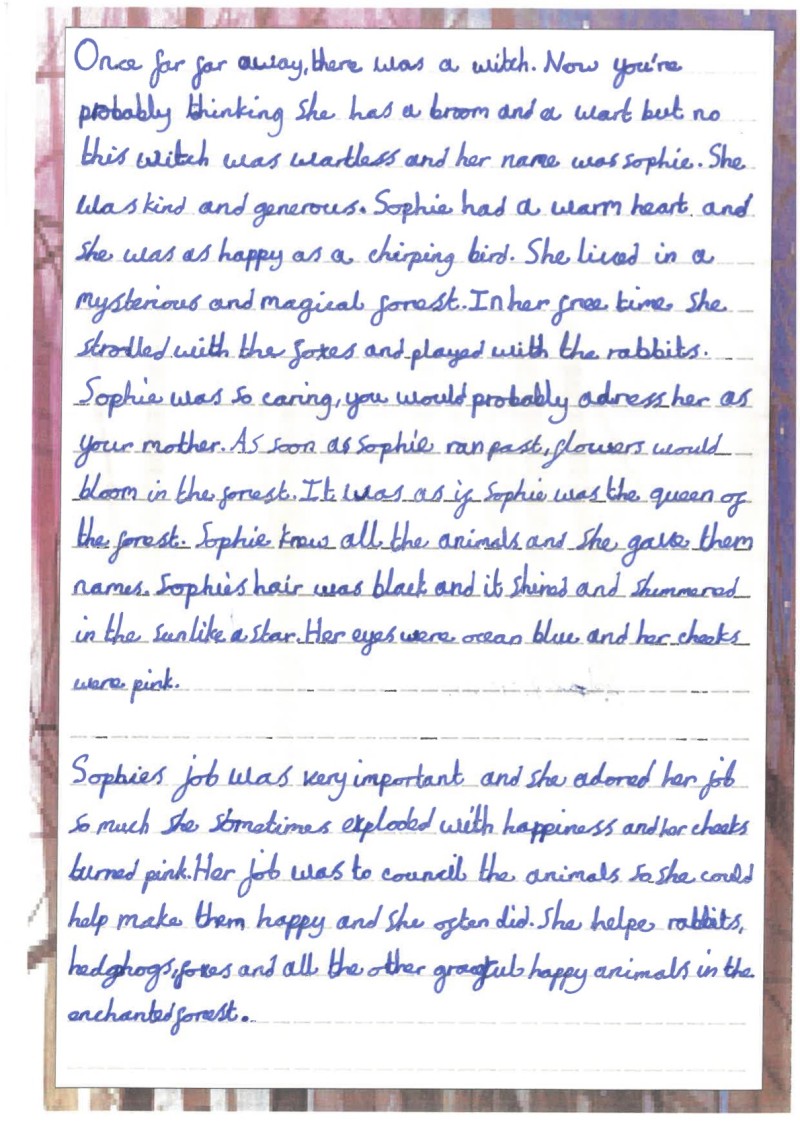 Once far far away, there was a witch. Now you're
probably thinking she has a broom and a wart but no
this witch was wartless and her name was sophie. She
was kind and generous. Sophie had a warm heart and
she was as happy as a chirping bird. She lived in a
mysterious and magical forest. In her free time she
strolled with the foxes and played with the rabbits.
Sophie was so caring, you would probably adress her as
your mother. As soon as Sophie ran past, flowers would
bloom in the forest. It was as if Sophie was the queen of
the forest. Sophie knew all the animals and she gave them
names. Sophie's hair was black and it shined and shimmered
in the sun like a star. Her eyes were ocean blue and her cheeks
were pink.
Sophies job was very important and she adored her job
so much she sometimes exploded with happiness and her cheeks
turned pink. Her job was to council the animals so she could
help make them happy and she often did. She helpe rabbits,
hedghogs, foxes and all the other happy animals in the
enchanted forest.